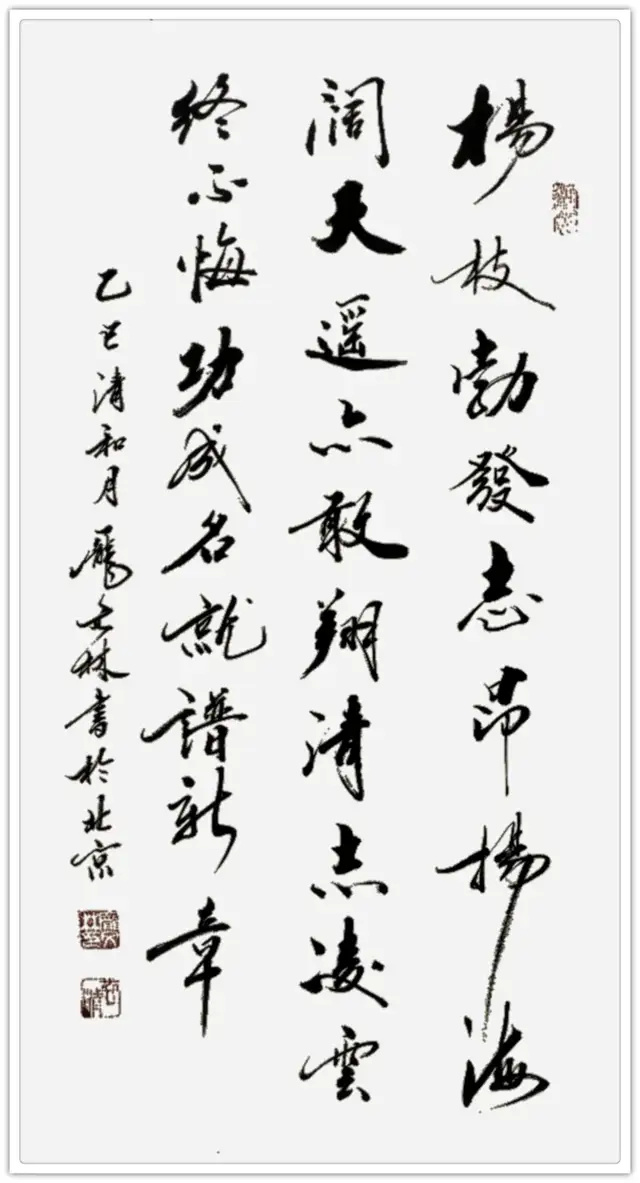 楊枝勃發志昂揚海
闊天遥亦敢翔清志凌雲
終不悔功成名就譜新章
乙巳清和月龐林書於北京